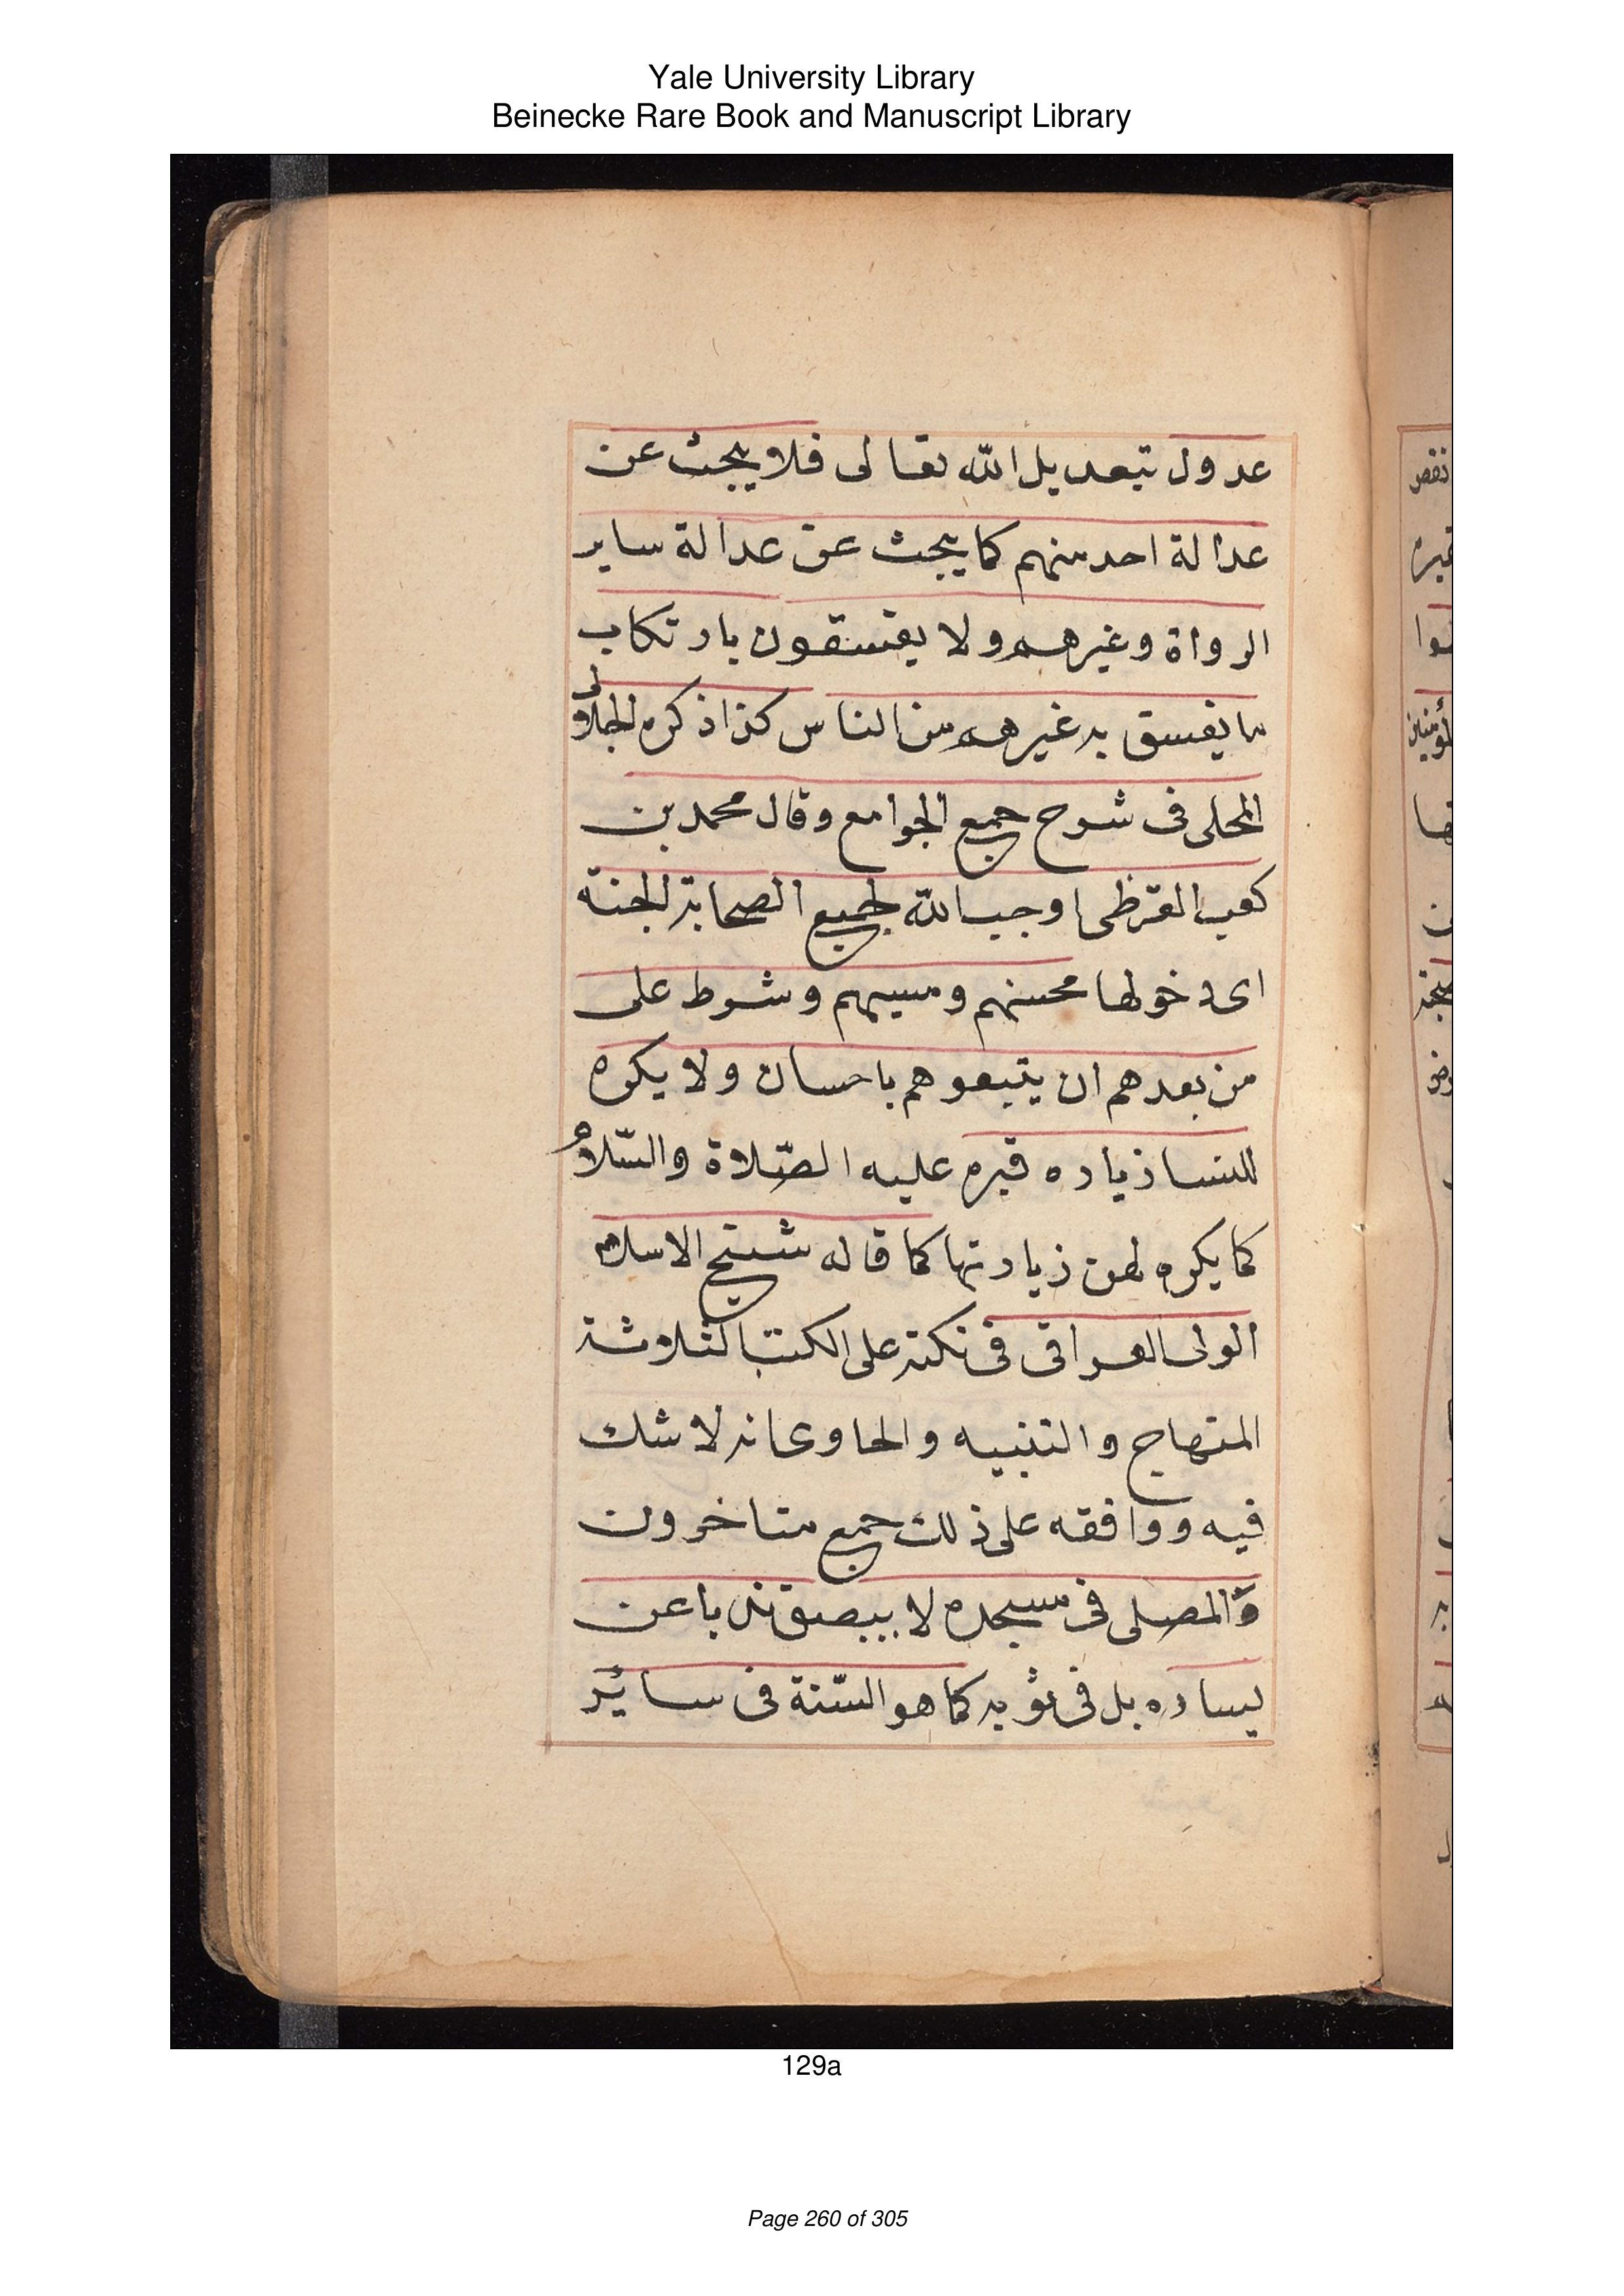 Yale University Library
Beinecke Rare Book and Manuscript Library
عدول بتعديل الله تعالى فلا يبحث عن
عدالة احد منهم كما يبحث عن عدالة ساير
الرواة وغيرهم ولا يفسقون بارتكاب
ما يفسق به غيرهم من الناس كذا ذكره الجلال
المحلى فى شرح جمع الجوامع وقال محمد بن
كعب القرظى اوجب الله لجميع الصحابة الجنة
اى دخولها محسنهم ومسيهم وشرط على
من بعدهم ان يتبعوهم باحسان ولا يكره
للنسا زياره قبره عليه الصّلاة والسّلام
كما يكره لهن زيارتها كما قاله شيخ الاسلام
الولى العراقى فى نكته على الكتب الثلاثة
المنهاج والتنبيه والحاوى انه لا شك
فيه ووافقه على ذلك جمع متاخرون
وَالمصلى فى مسجده لا يبصق ندبا عن
يساره بل فى ثوبه كما هو السّنة فى سائر
نقص
غيره
129a
Page 260 of 305